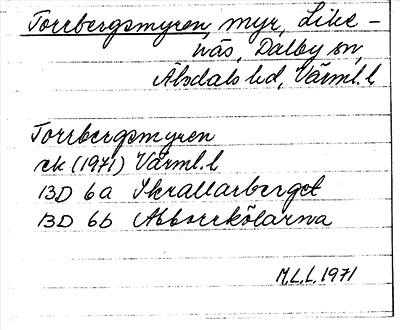 Torrbergsmyren, myr, Like-
näs, Dalby sn,
Älvdals hd, Värml. l
Torrbergsmyren
ek (1971) Värml. l
13D 6a Skrallarberget
13D 6b Abborrkölarna
M.L.L. 1971